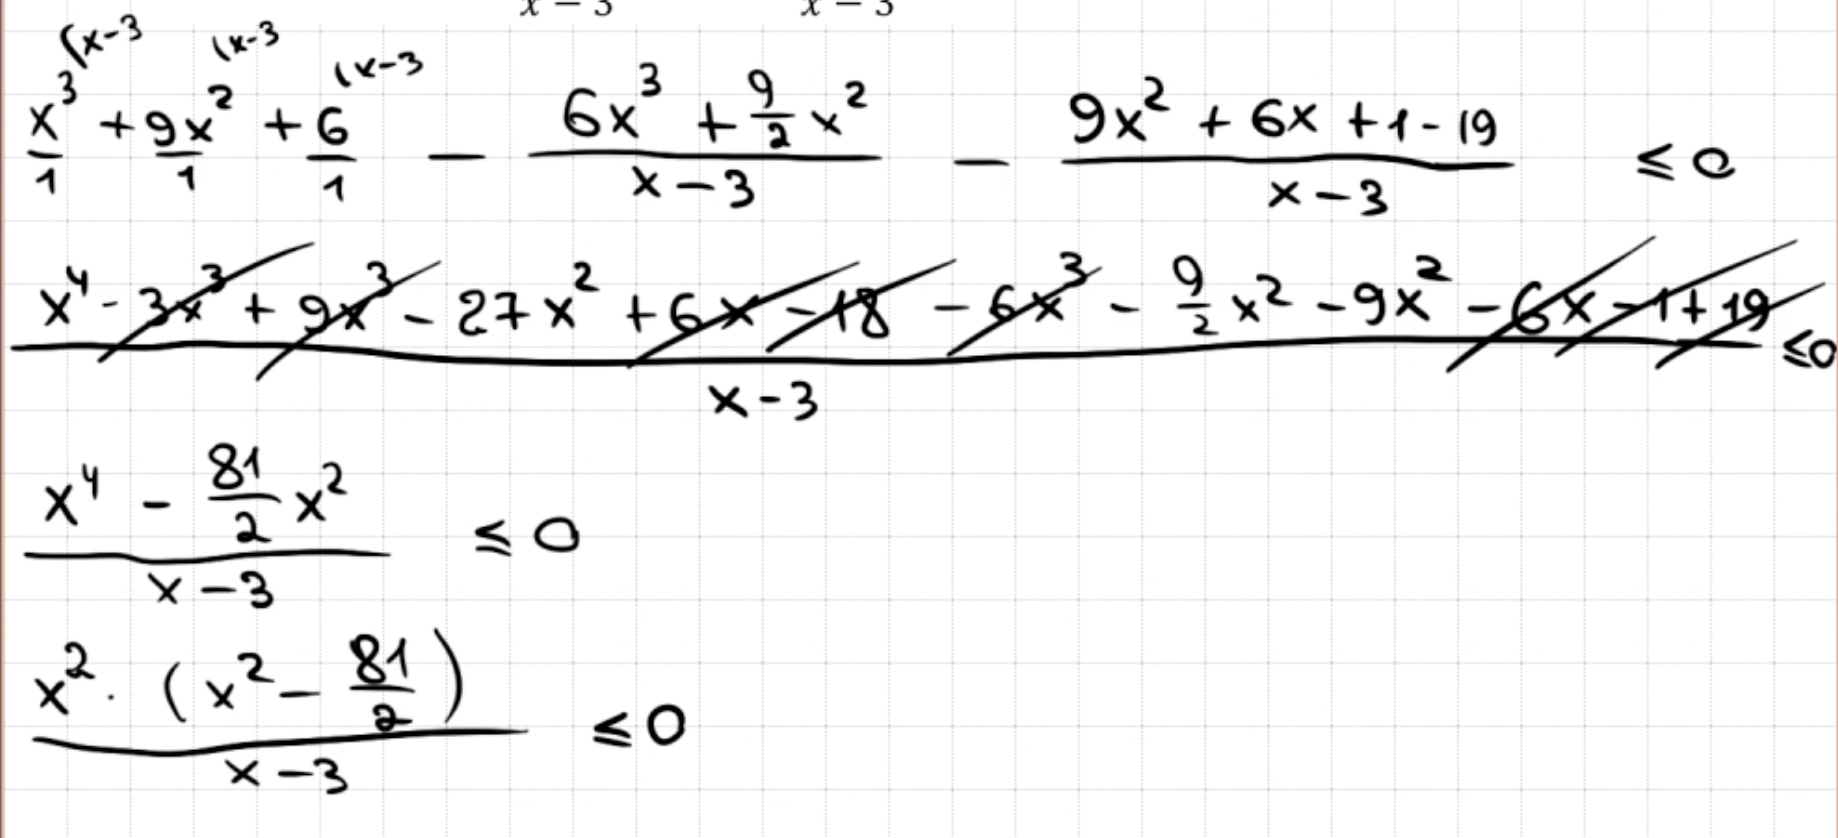 x - 3 x - 3
(x-3 (x-3 (x-3
x³/1 + 9x²/1 + 6/1 - (6x³ + 9/2 x²)/(x-3) - (9x² + 6x + 1 - 19)/(x-3) ≤ 0
(x⁴ - 3x³ + 9x³ - 27x² + 6x - 18 - 6x³ - 9/2 x² - 9x² - 6x - 1 + 19)/(x-3) ≤ 0
(x⁴ - 81/2 x²)/(x-3) ≤ 0
(x² · (x² - 81/2))/(x-3) ≤ 0